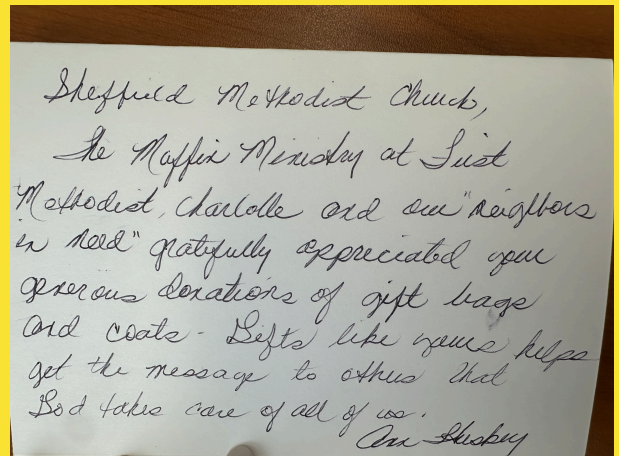 Sheffield Methodist Church,
The Maffin Ministry at First
Methodist, Charlotte and our "neighbors
in need" gratefully appreciated your
generous donations of gift bags
and coats - Gifts like yours helps
get the message to others that
God takes care of all of us.
Ann